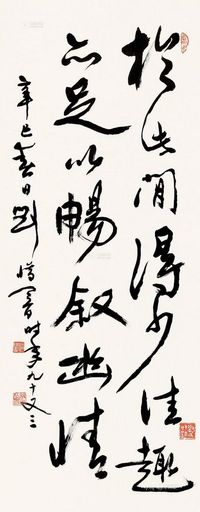 於此間得少佳趣
亦足以暢叙幽情
辛巳春日劉
惜闇时年九十又三